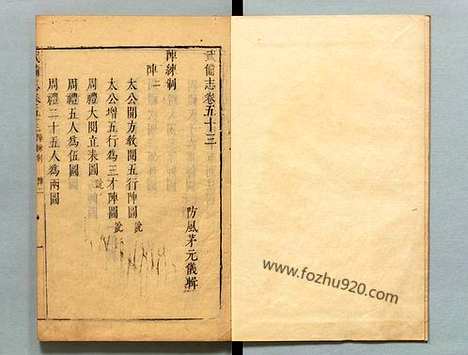 武備志卷五十三
防風茅元儀輯
陣練制
陣二
太公開方教閱五行陣圖 說
太公增五行為三才陣圖 說
周禮大閱立表圖 說
周禮五人為伍圖
周禮二十五人為兩圖
武備志卷五十三 陣練制 陣二 一
www.fozhu920.com